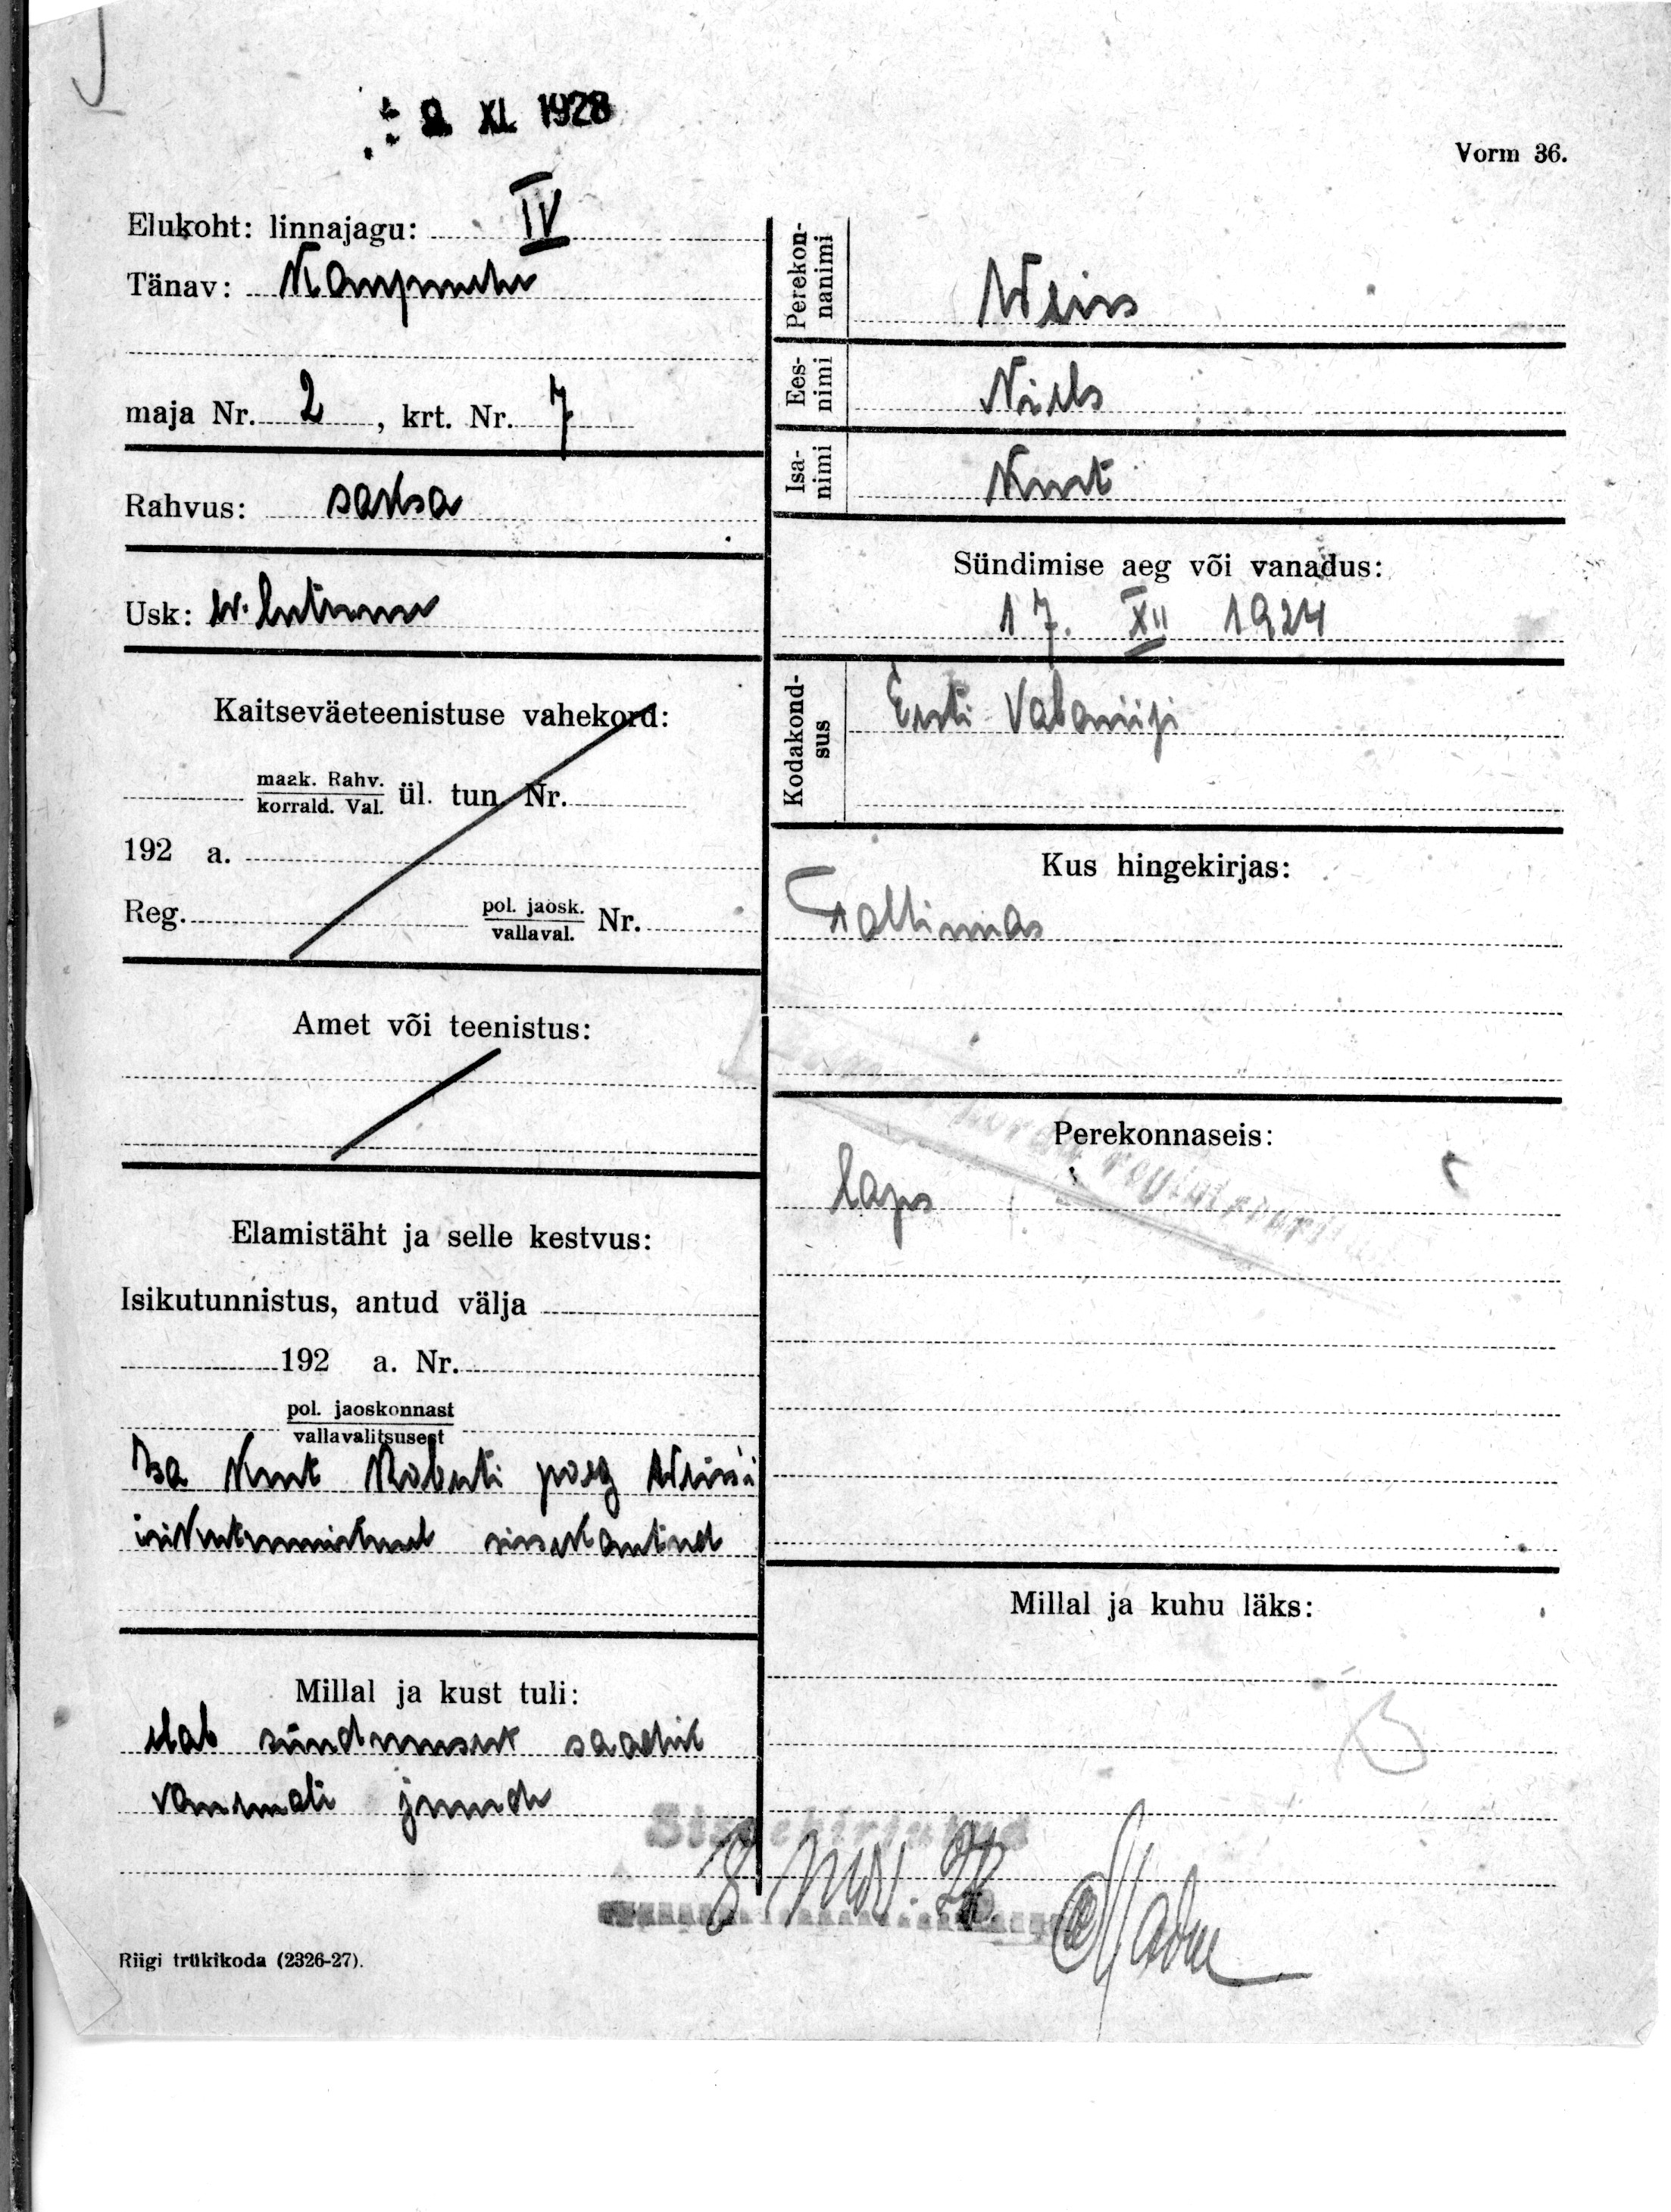 XI 1928
Vorm 36.
Elukoht: linnajagu: IV
Tänav:
maja Nr. 2, krt. Nr. 7
Rahvus: saksa
Usk: ev. luteruse
Kaitseväeteenistuse vahekord:
maak. Rahv. / korrald. Val. ül. tun. Nr.
192 a.
Reg. pol. jaosk. / vallaval. Nr.
Amet või teenistus:
Elamistäht ja selle kestvus:
Isikutunnistus, antud välja
192 a. Nr.
pol. jaoskonnast
vallavalitsusest
Isa Kurt Roberti poeg Weiss'i
isikutunnistusel sissekantud
Millal ja kust tuli:
elab sündimusest saadik
vanemate juures
Riigi trükikoda (2326-27).
Perekon-
nanimi
Weiss
Ees-
nimi
Niels
Isa-
nimi
Kurt
Sündimise aeg või vanadus:
17. XII 1924
Kodakond-
sus
Eesti Vabariigi
Kus hingekirjas:
Tallinnas
Perekonnaseis:
laps
Millal ja kuhu läks:
Sissekirjutud
8 Nov. 28